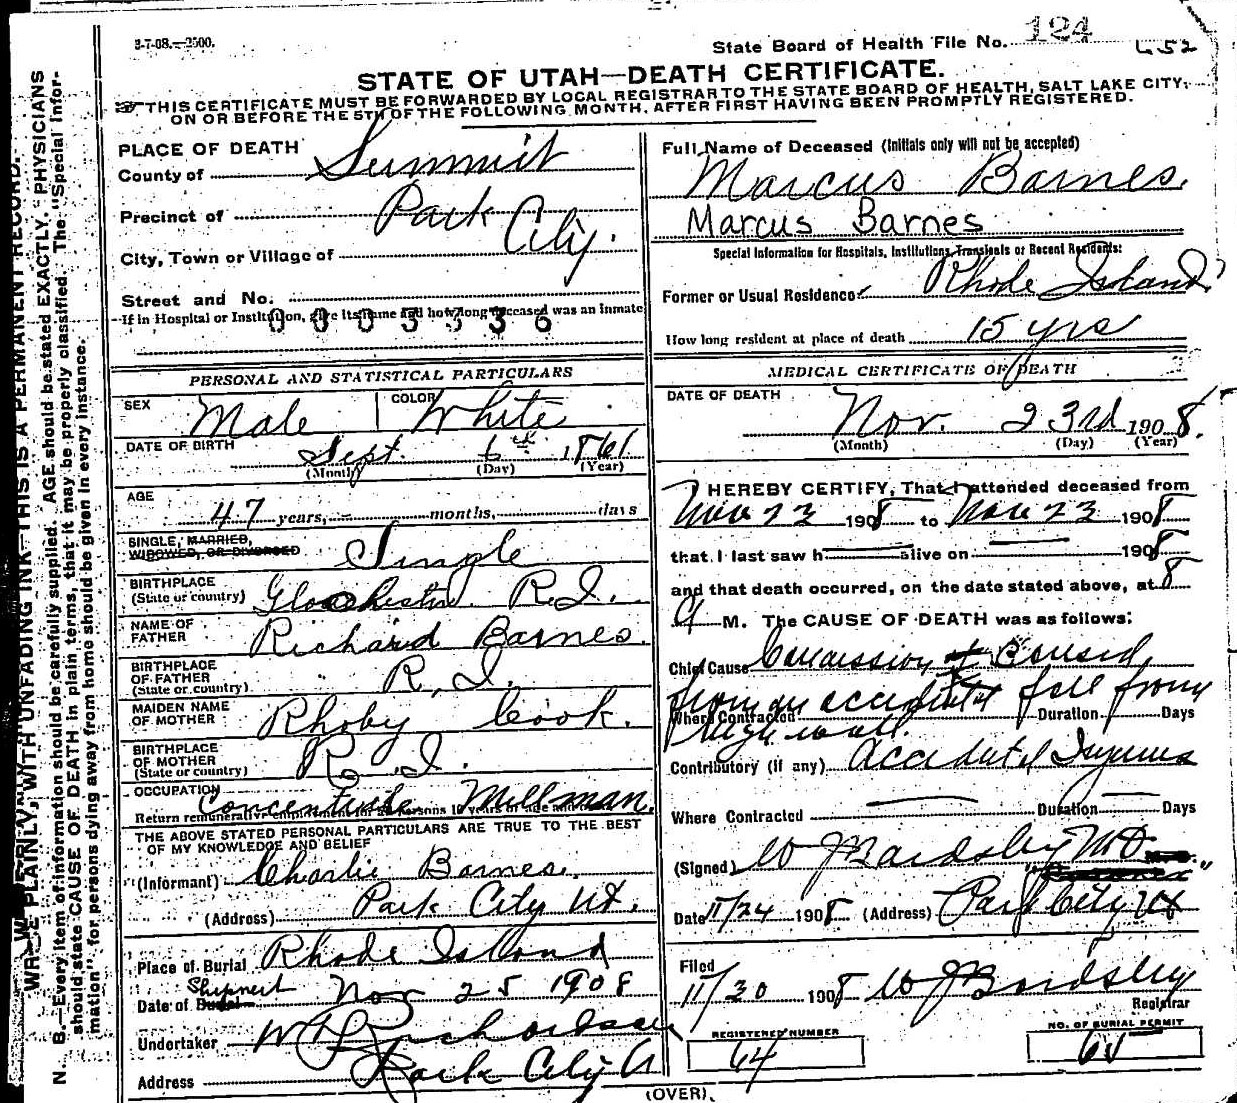 3-7-08.—2500.
State Board of Health File No. 124
652
STATE OF UTAH—DEATH CERTIFICATE.
THIS CERTIFICATE MUST BE FORWARDED BY LOCAL REGISTRAR TO THE STATE BOARD OF HEALTH, SALT LAKE CITY,
ON OR BEFORE THE 5TH OF THE FOLLOWING MONTH, AFTER FIRST HAVING BEEN PROMPTLY REGISTERED.
WRITE PLAINLY, WITH UNFADING INK—THIS IS A PERMANENT RECORD.
N. B.—Every item of information should be carefully supplied. AGE should be stated EXACTLY. PHYSICIANS
should state CAUSE OF DEATH in plain terms, that it may be properly classified. The "Special Infor-
mation" for persons dying away from home should be given in every instance.
PLACE OF DEATH
County of Summit
Precinct of Park City.
City, Town or Village of
Street and No.
If in Hospital or Institution, give its name and how long deceased was an inmate
0003336
PERSONAL AND STATISTICAL PARTICULARS
SEX Male COLOR White
DATE OF BIRTH Sept 6th 1861
(Month) (Day) (Year)
AGE
47 years, months, days
SINGLE, MARRIED,
WIDOWED, OR DIVORCED Single
BIRTHPLACE
(State or country) R.I.
NAME OF
FATHER Richard Barnes.
BIRTHPLACE
OF FATHER
(State or country) R.I.
MAIDEN NAME
OF MOTHER Rhoby Cook.
BIRTHPLACE
OF MOTHER
(State or country) R.I.
OCCUPATION Millman.
Return remunerative employment for all persons 10 years of age and over
THE ABOVE STATED PERSONAL PARTICULARS ARE TRUE TO THE BEST
OF MY KNOWLEDGE AND BELIEF
(Informant) Charlie Barnes.
(Address) Park City Ut.
Place of Burial Rhode Island
Shipment
Date of Burial Nov 25 1908
Undertaker Richardson
Address Park City
Full Name of Deceased (Initials only will not be accepted)
Marcus Barnes.
Marcus Barnes
Special Information for Hospitals, Institutions, Transients or Recent Residents:
Former or Usual Residence Rhode Island
How long resident at place of death 15 yrs
MEDICAL CERTIFICATE OF DEATH
DATE OF DEATH
Nov. 23rd 1908.
(Month) (Day) (Year)
I HEREBY CERTIFY, That I attended deceased from
Nov 23 1908 to Nov 23 1908
that I last saw h alive on 1908
and that death occurred, on the date stated above, at 8
M. The CAUSE OF DEATH was as follows:
Chief Cause Concussion Caused
from an accidental fall from
Where Contracted Duration Days
high wall.
Contributory (if any) Accidental Injuries
Where Contracted Duration Days
(Signed) W J Bardsley MD M.D.
"Coroner"
Date 11/24 1908 (Address) Park City Ut
Filed
11/30 1908 W J Bardsley
Registrar
REGISTERED NUMBER
64
NO. OF BURIAL PERMIT
(OVER).